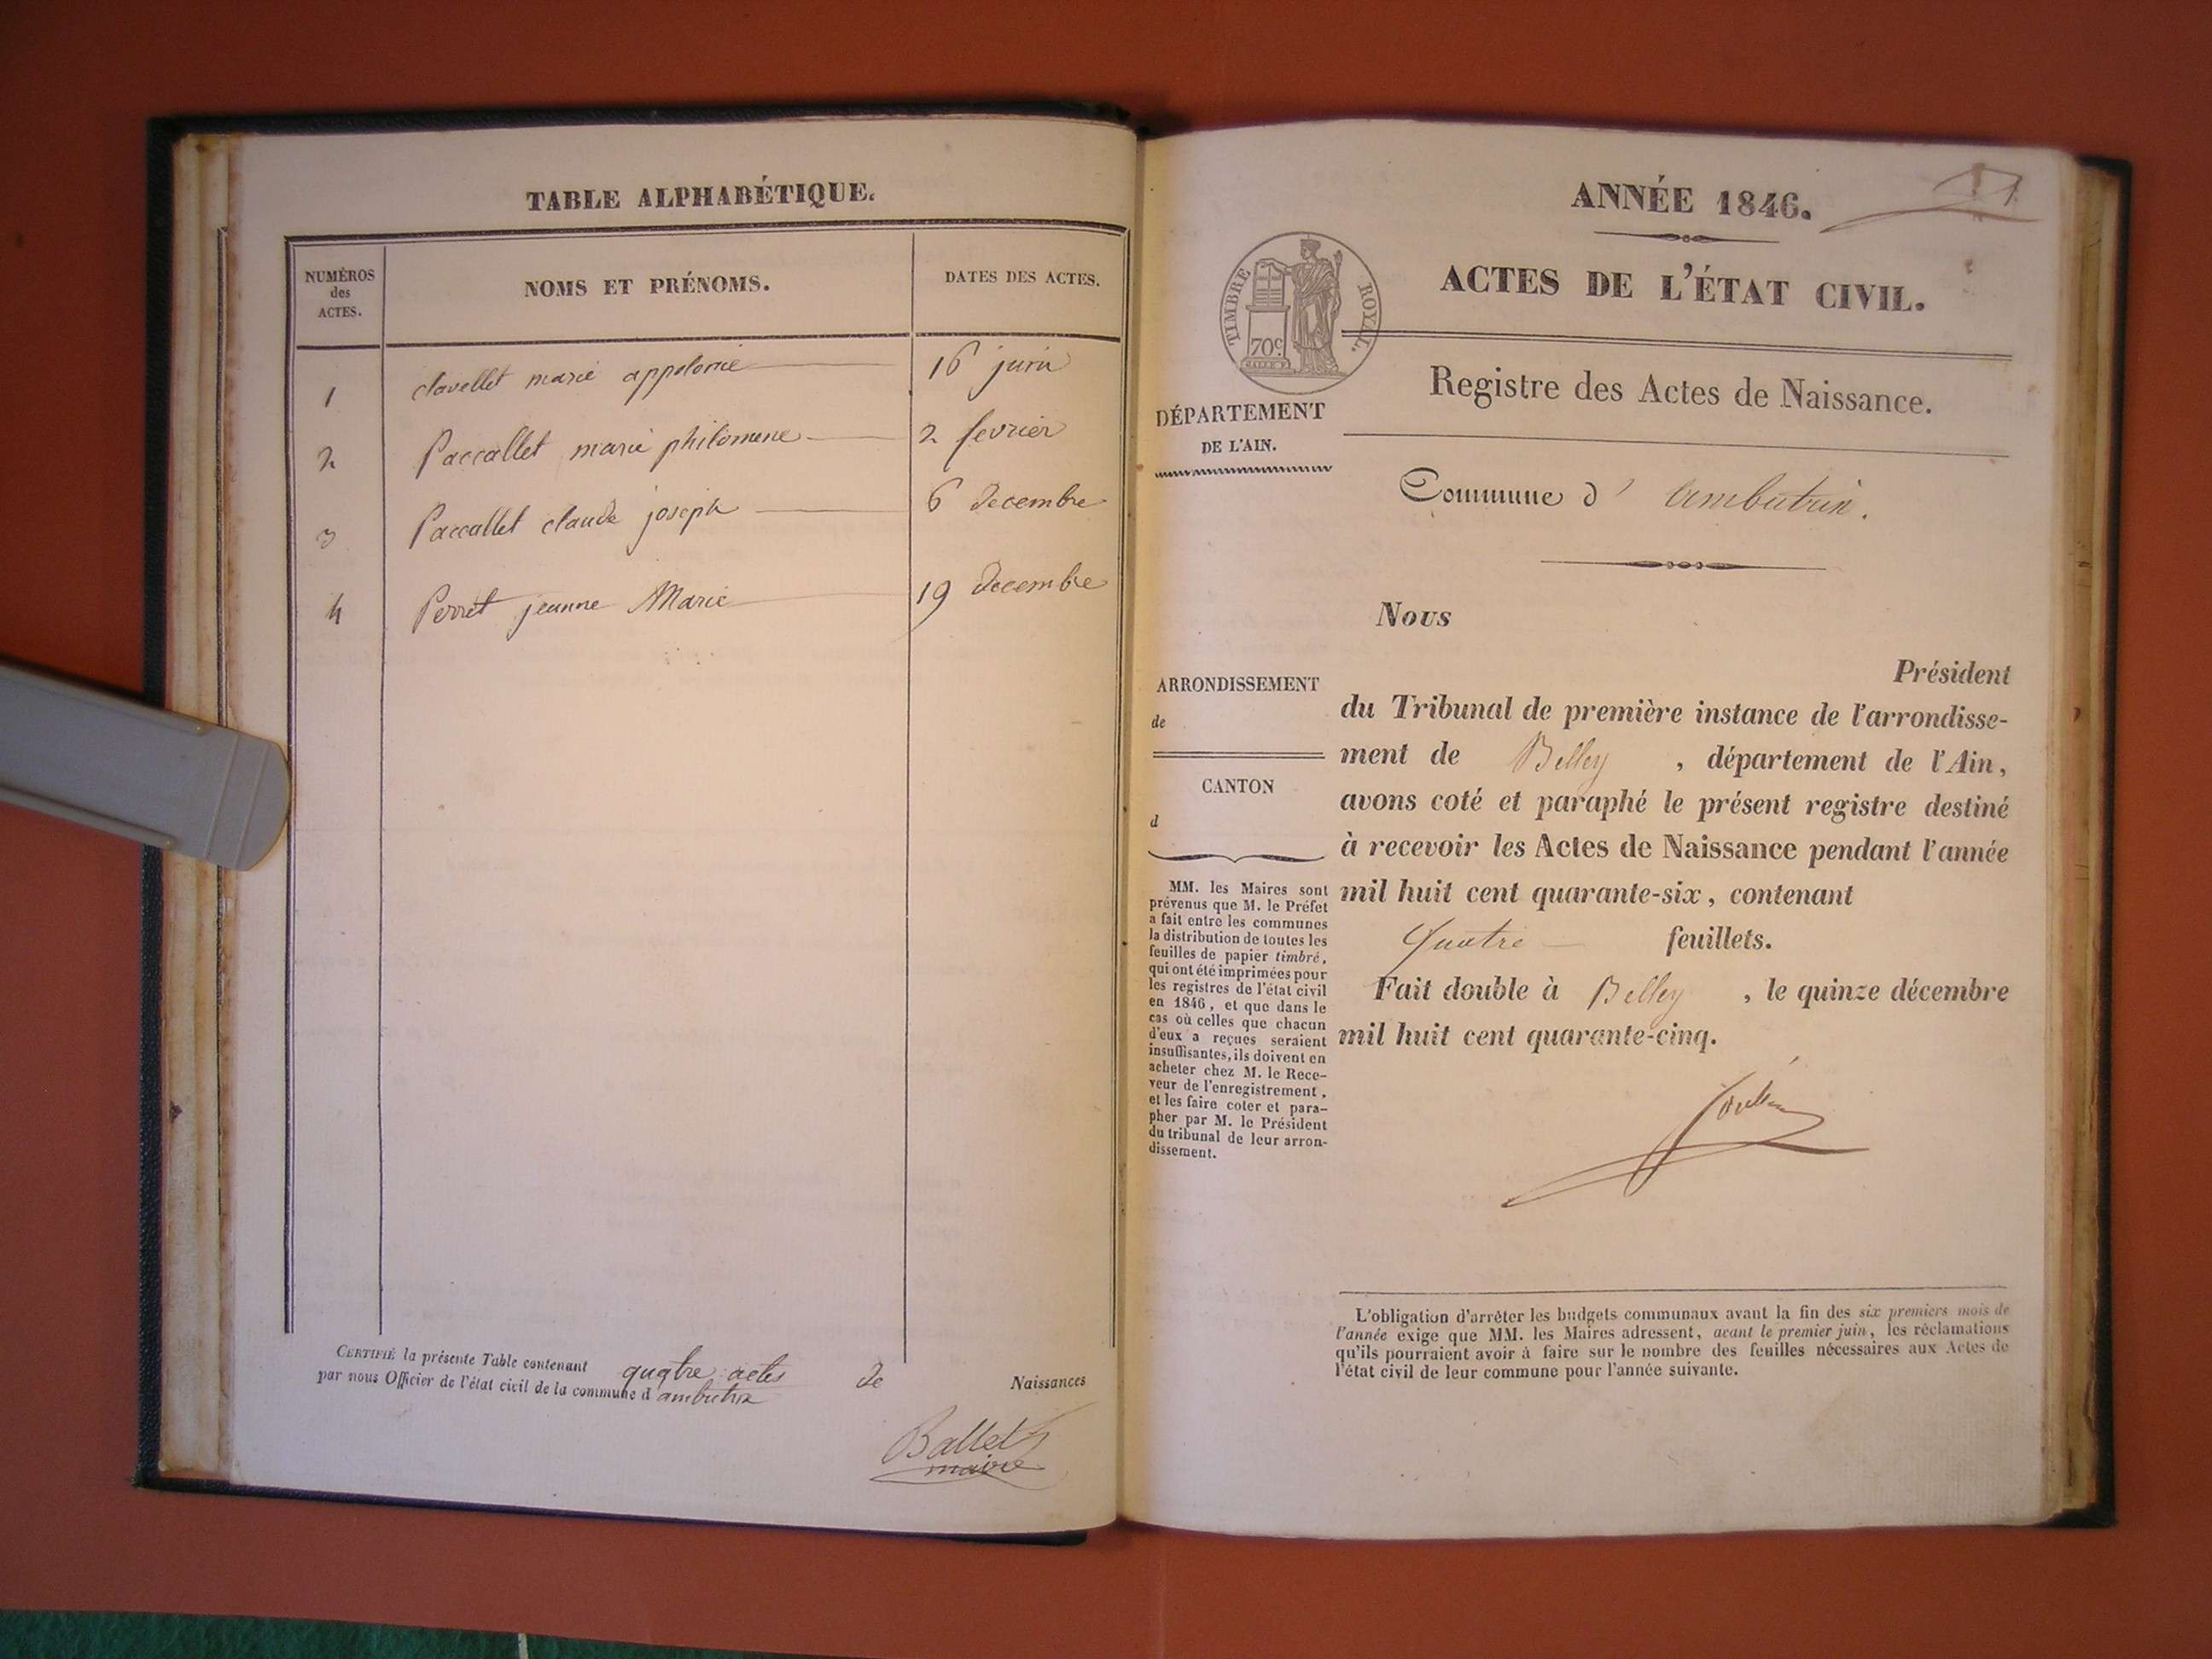 TABLE ALPHABÉTIQUE.
NUMÉROS
des
ACTES.
NOMS ET PRÉNOMS.
DATES DES ACTES.
1 clavellet marie appolonie 16 juin
2 Paccallet marie philomene 2 fevrier
3 Paccallet claude joseph 6 decembre
4 Perret jeanne Marie 19 decembre
CERTIFIÉ la présente Table contenant quatre actes de Naissances
par nous Officier de l'état civil de la commune d ambutrix
Ballet
maire
ANNÉE 1846.
1
ACTES DE L'ÉTAT CIVIL.
TIMBRE ROYAL.
70c
Registre des Actes de Naissance.
DÉPARTEMENT
DE L'AIN.
Commune d' ambutrix.
Nous
Président
du Tribunal de première instance de l'arrondisse-
ment de Belley, département de l'Ain,
avons coté et paraphé le présent registre destiné
à recevoir les Actes de Naissance pendant l'année
mil huit cent quarante-six, contenant
Quatre feuillets.
Fait double à Belley, le quinze décembre
mil huit cent quarante-cinq.
ARRONDISSEMENT
de
CANTON
d
MM. les Maires sont
prévenus que M. le Préfet
a fait entre les communes
la distribution de toutes les
feuilles de papier timbré,
qui ont été imprimées pour
les registres de l'état civil
en 1846, et que dans le
cas où celles que chacun
d'eux a reçues seraient
insuffisantes, ils doivent en
acheter chez M. le Rece-
veur de l'enregistrement,
et les faire coter et para-
pher par M. le Président
du tribunal de leur arron-
dissement.
L'obligation d'arrêter les budgets communaux avant la fin des six premiers mois de
l'année exige que MM. les Maires adressent, avant le premier juin, les réclamations
qu'ils pourraient avoir à faire sur le nombre des feuilles nécessaires aux Actes de
l'état civil de leur commune pour l'année suivante.